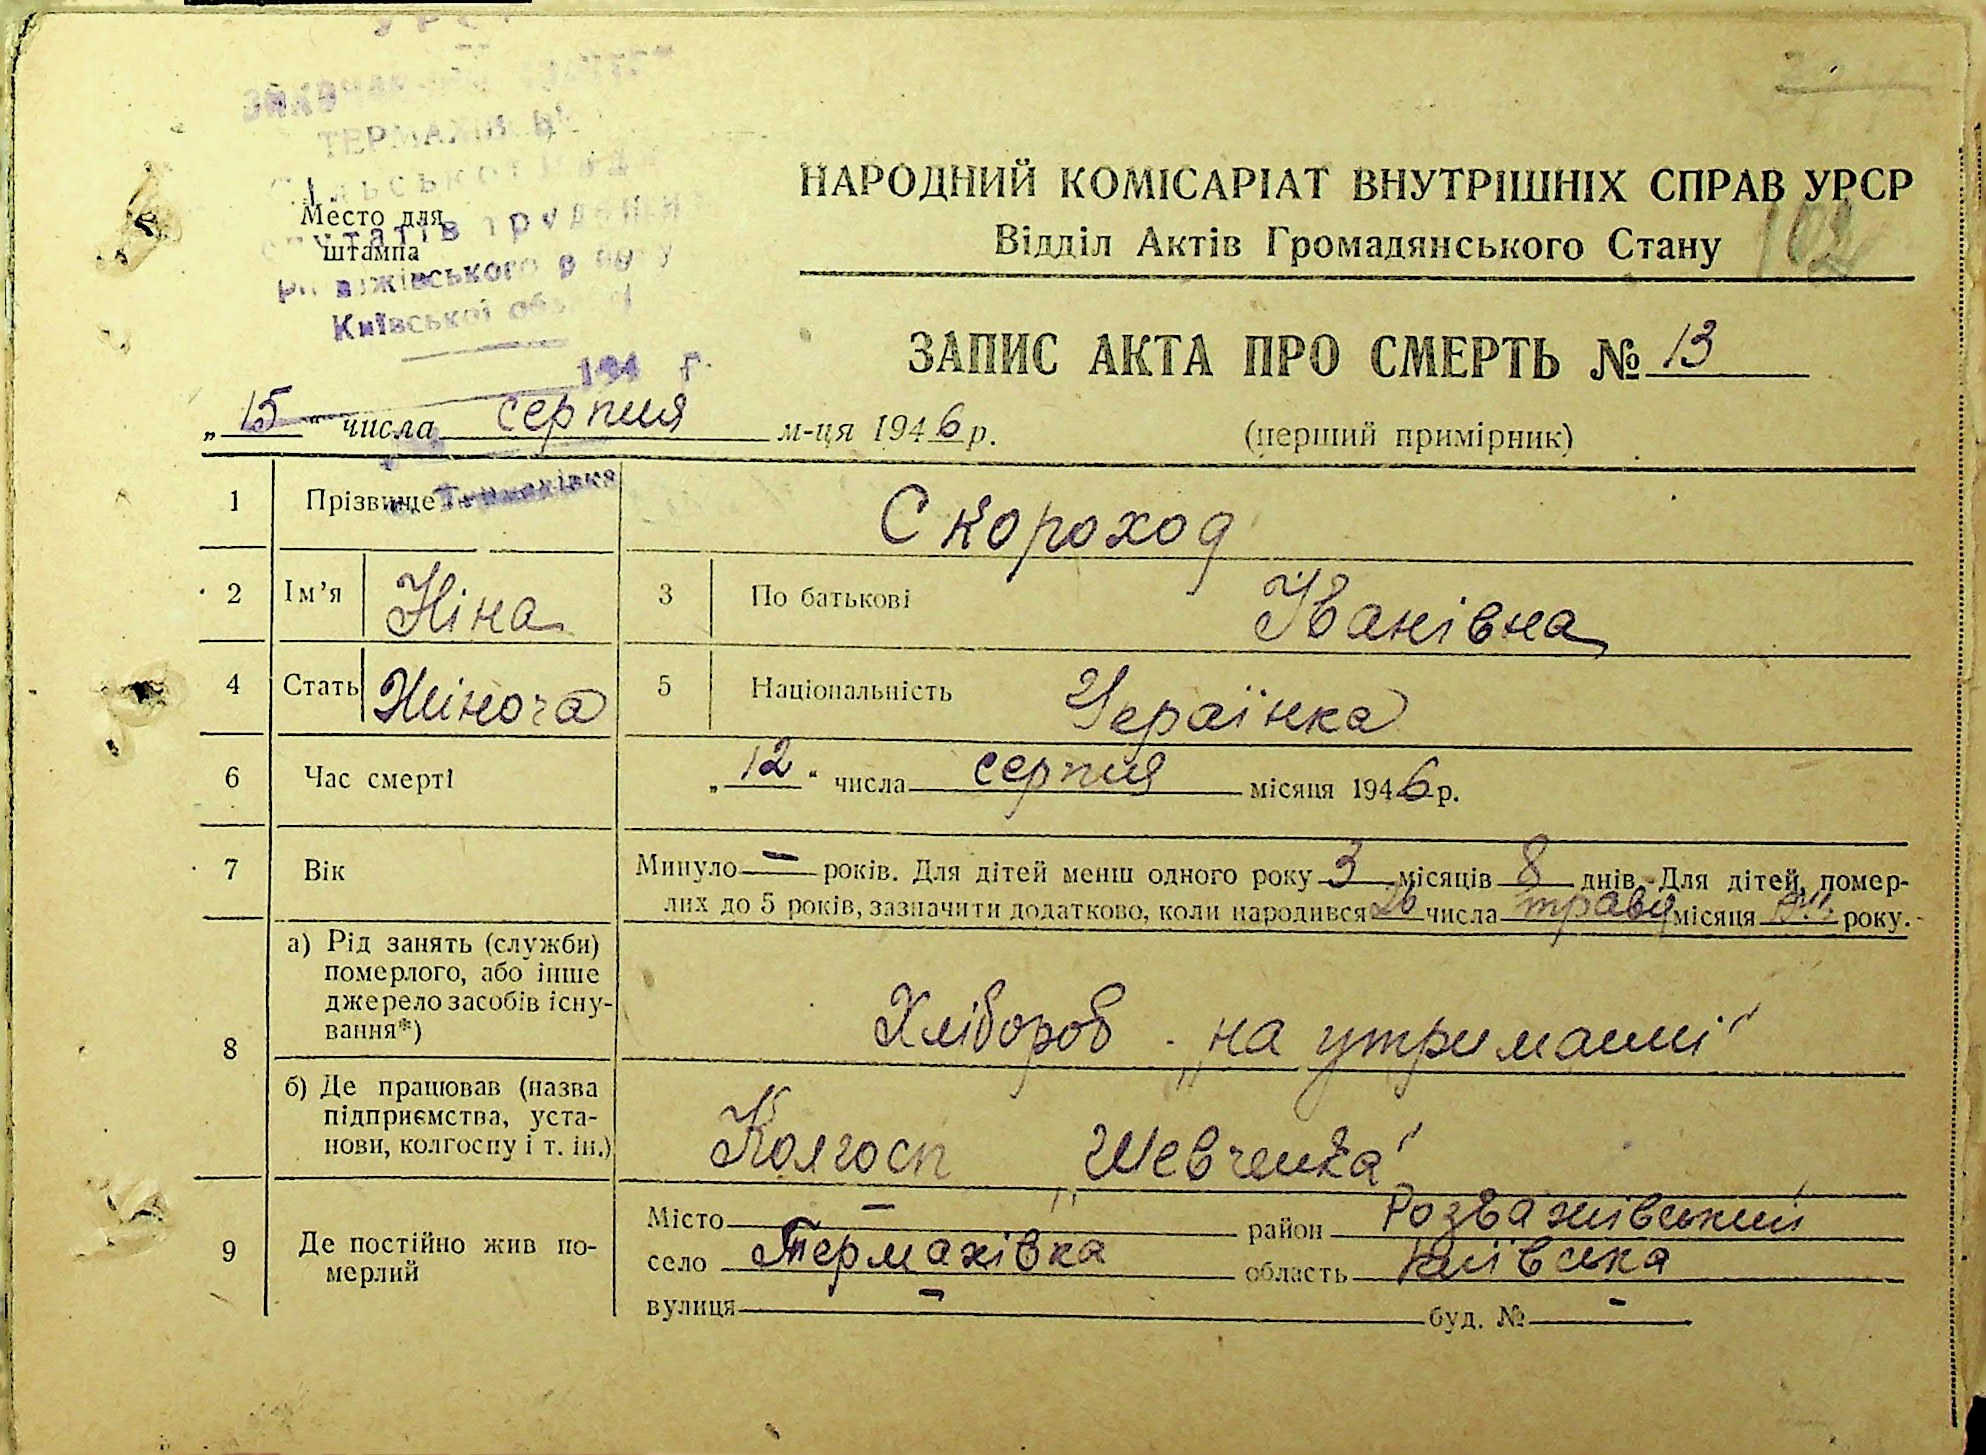 УРСР
ТЕРМАХІВ
Місто для
штампа
Київської
194 г.
НАРОДНИЙ КОМІСАРІАТ ВНУТРІШНІХ СПРАВ УРСР
Відділ Актів Громадянського Стану
102
ЗАПИС АКТА ПРО СМЕРТЬ № 13
„15“ числа серпня м-ця 1946 р.
(перший примірник)
1 Прізвище Скороход
2 Ім’я Ніна 3 По батькові Іванівна
4 Стать Жіноча 5 Національність Українка
6 Час смерті „12“ числа серпня місяця 1946 р.
7 Вік Минуло — років. Для дітей менш одного року 3 місяців 8 днів. Для дітей, помер-
лих до 5 років, зазначити додатково, коли народився числа травя місяця року.
8 а) Рід занять (служби)
померлого, або інше
джерело засобів існу-
вання*)
Хлібороб „на утриманні“
б) Де працював (назва
підприємства, уста-
нови, колгоспу і т. ін.)
Колгосп „Шевченка“
9 Де постійно жив по-
мерлий
Місто — район Розважівський
село Термахівка область Київська
вулиця — буд. № —